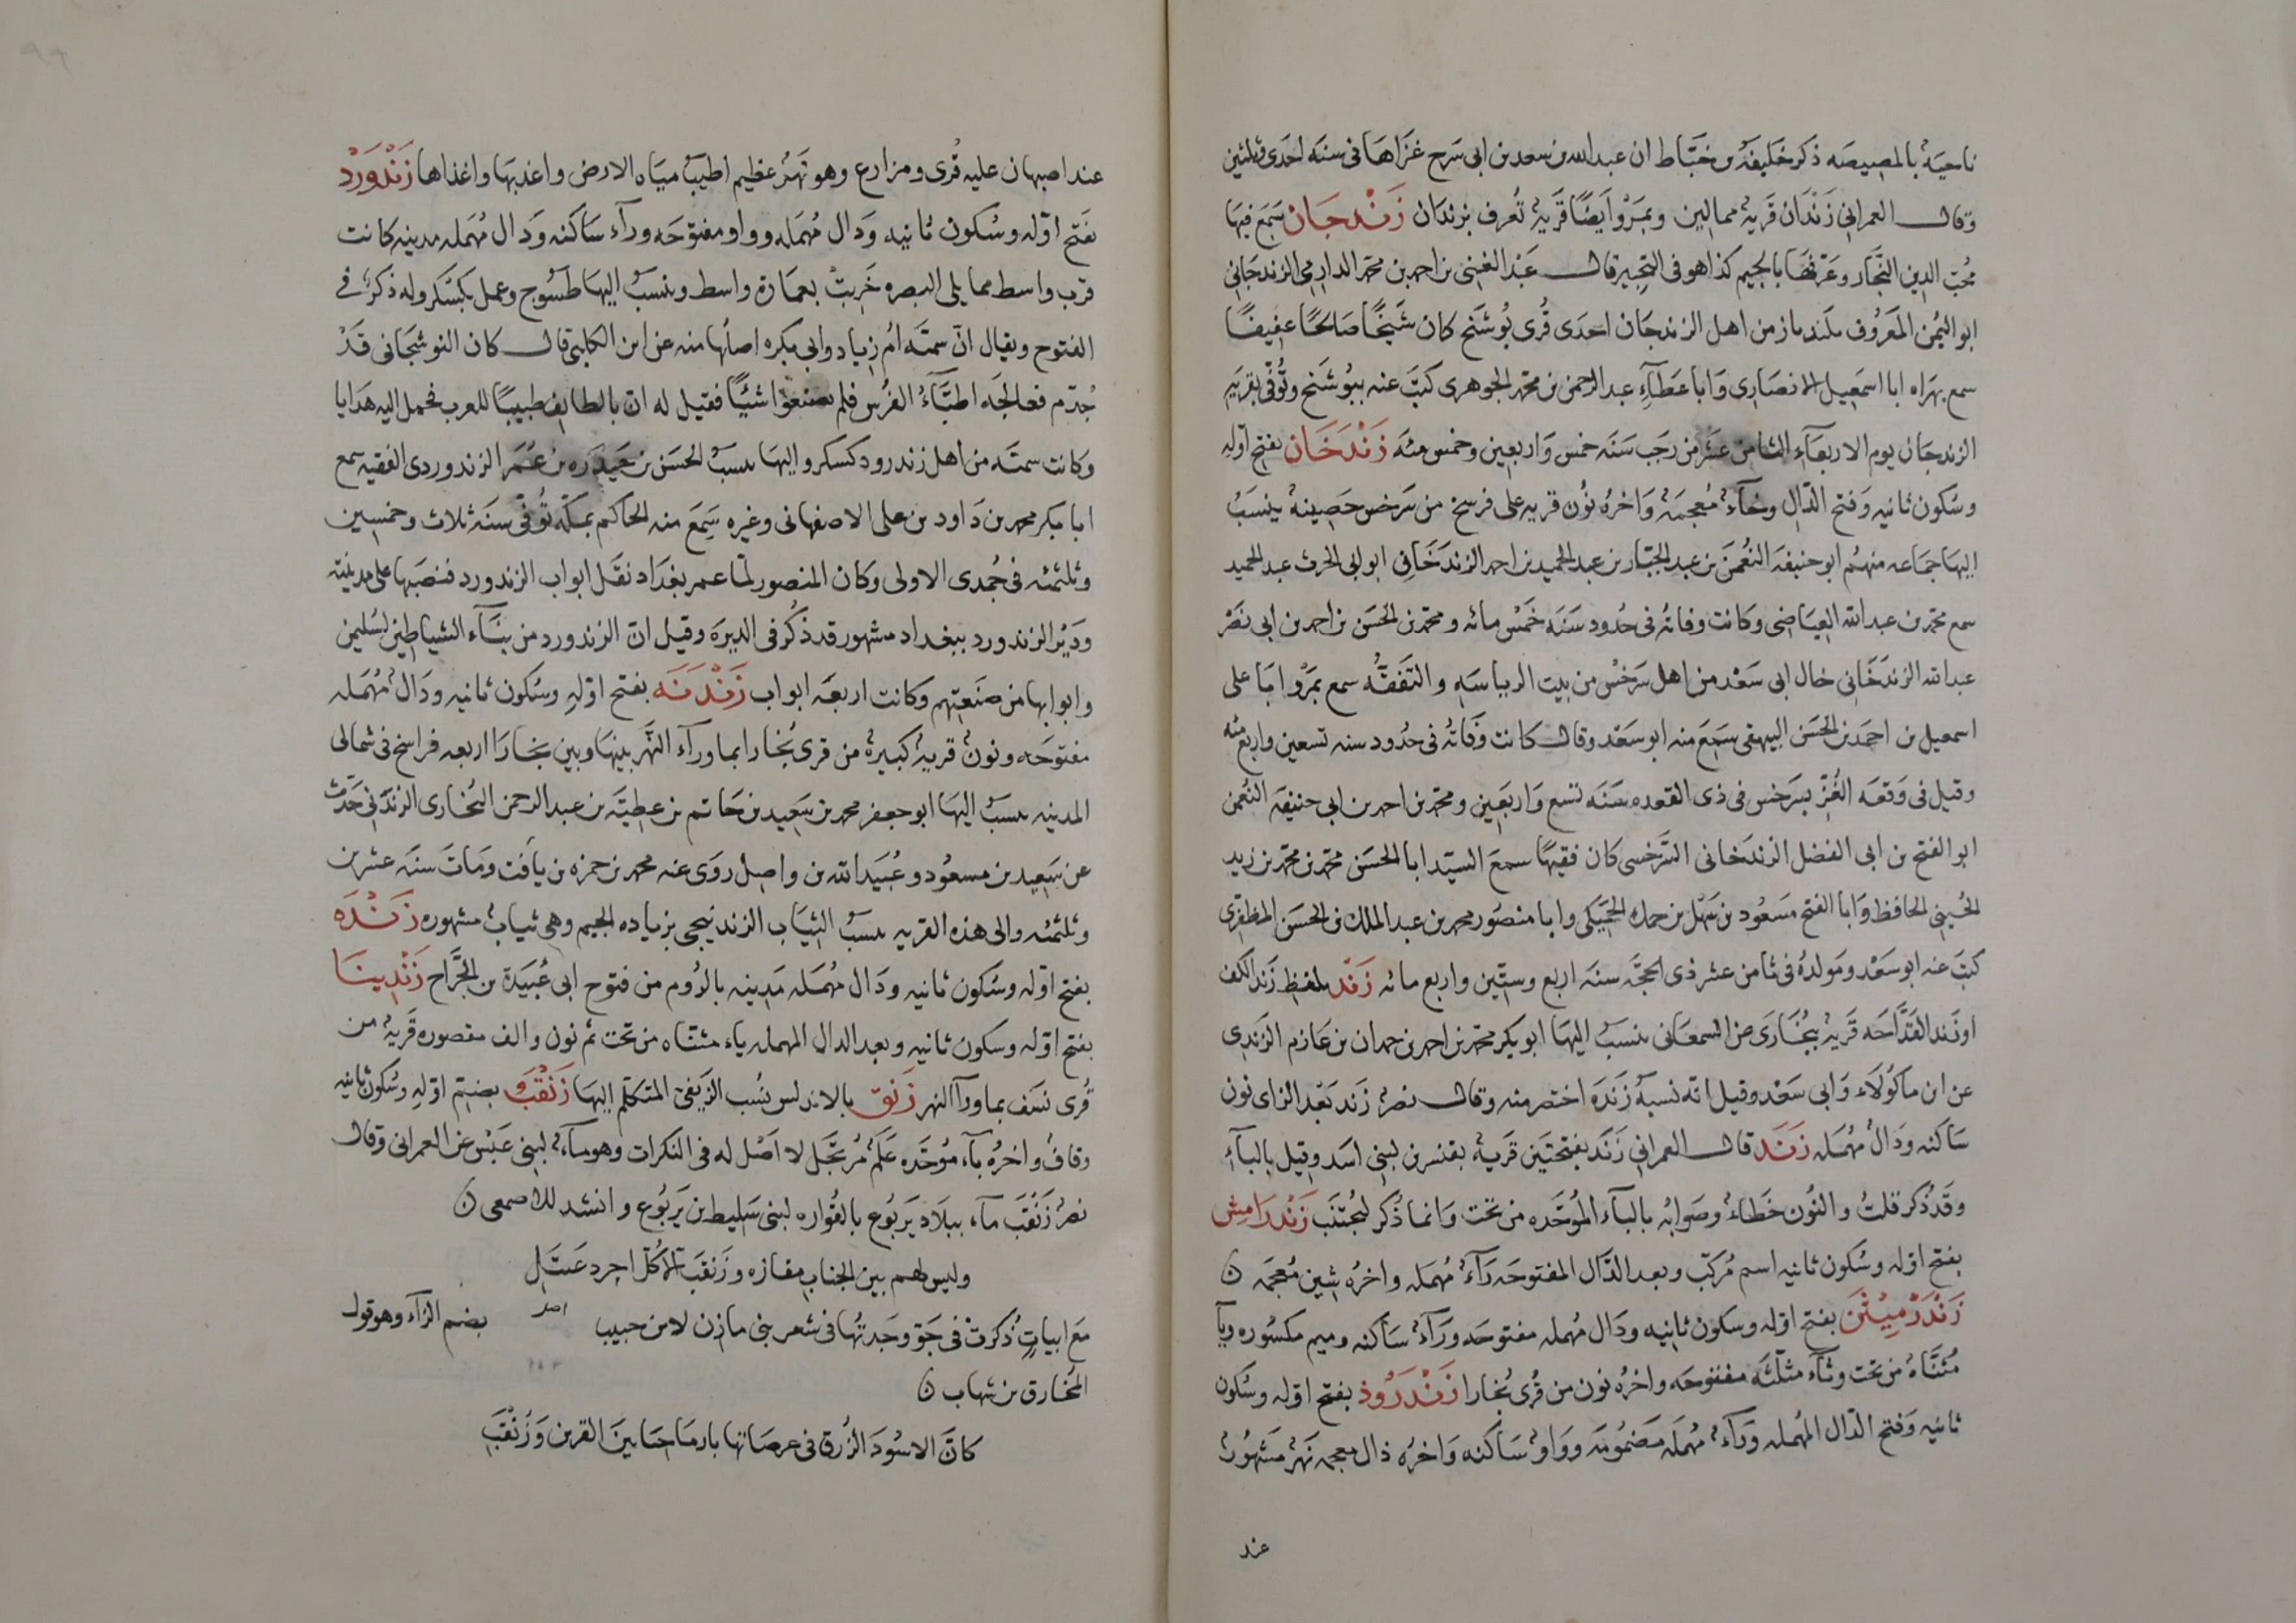 ناحية بالمصيصه ذكر خليفة بن خياط ان عبد الله بن سعد بن ابى سرح غزاها فى سنه احدى وثلثين
وقال العمرانى زندان قرية ممالين وبمرو ايضًا قرية تعرف بزندان زندجان سمع فيها
محب الدين النجار وعرفها بالجيم كذا هو فى التحبير قال عبد الغنى بن احمد بن محمد الدارمى الزندجانى
ابو اليمن المعروف من اهل الزندجان احدى قرى بوشنج كان شيخًا صالحًا عفيفًا
سمع بهراه ابا اسمعيل الانصارى وابا عطاء عبد الرحمن بن محمد الجوهرى كتب عنه ببوشنج وتوفى بقريه
الزندجان يوم الاربعاء الثامن عشر من رجب سنه خمس واربعين وخمس مئه زندخان بفتح اوله
وسكون ثانيه وفتح الدال وخاء معجمة واخره نون قريه على فرسخ من سرخس حصينة ينسب
اليها جماعه منهم ابو حنيفه النعمن بن عبد الجبار بن عبد الحميد بن احمد الزندخانى ابو الحرث عبد الحميد
سمع محمد بن عبد الله العياضى وكانت وفاته فى حدود سنه خمس مائه ومحمد بن الحسن بن احمد بن ابى نصر
عبد الله الزندخانى خال ابى سعد من اهل سرخس من بيت الرياسه والتفقه سمع بمرو ابا على
اسمعيل بن احمد بن الحسن البيهقى سمع منه ابو سعد وقال كانت وفاته فى حدود سنه تسعين واربع مئه
وقيل فى وقعه الغز بسرخس فى ذى القعده سنه تسع واربعين ومحمد بن احمد بن ابى حنيفه النعمن
ابو الفتح بن ابى الفضل الزندخانى السرخسى كان فقيهًا سمع السيد ابا الحسن محمد بن محمد بن زيد
الحسينى الحافظ وابا الفتح مسعود بن سهل بن حمك وابا منصور محمد بن عبد الملك بن الحسن المظفرى
كتب عنه ابو سعد ومولده فى ثامن عشر ذى الحجه سنه اربع وستين واربع مائه زند بلفظ زند الكف
او زند القداحه قرية ببخارى عن السمعانى ينسب اليها ابو بكر محمد بن احمد بن حمدان بن عازم الزندى
عن ابن ماكولاء وابى سعد وقيل انه نسبة زنده اختصر منه وقال نصر زند بعد الزاى نون
ساكنه ودال مهمله زند قال العمرانى زند بفتحتين قرية بقنسرين لبنى اسد وقيل بالباء
وقد ذكر قلت والنون خطاء وصوابه بالباء الموحده من تحت وانما ذكر ليجتنب زندرامش
بفتح اوله وسكون ثانيه اسم مركب وبعد الدال المفتوحه راء مهمله واخره شين معجمه ن
زندرميثن بفتح اوله وسكون ثانيه ودال مهمله مفتوحه وراء ساكنه وميم مكسوره وياء
مثناة من تحت وثاء مثلثه مفتوحه واخره نون من قرى بخارا زندروذ بفتح اوله وسكون
ثانيه وفتح الدال المهمله وراء مهمله مضمومه وواو ساكنه واخره ذال معجمه نهر مشهور
عند
عند اصبهان عليه قرى ومزارع وهو نهر عظيم اطيب مياه الارض واعذبها واغذاها زندورد
بفتح اوله وسكون ثانيه ودال مهمله وواو مفتوحه وراء ساكنه ودال مهمله مدينه كانت
قرب واسط مما يلى البصره خربت بعمارة واسط وينسب اليها طسوج وعمل بكسكر وله ذكر فى
الفتوح ويقال ان سميه ام زياد وابى بكره اصلها منه عن ابن الكلبى قال كان النوشجانى قد
جذم فعالجه اطباء الفرس فلم يصنعوا شيئًا فقيل له ان بالطايف طبيبًا للعرب فحمل اليه هدايا
وكانت سميه من اهل زندرود كسكر واليها ينسب الحسن بن حيدره بن عمر الزندوردى الفقيه سمع
ابا بكر محمد بن داود بن على الاصفهانى وغيره سمع منه الحاكم بمكة توفى سنه ثلاث وخمسين
وثلثمئه فى جمدى الاولى وكان المنصور لما عمر بغداد نقل ابواب الزندورد فنصبها على مدينته
ودير الزندورد ببغداد مشهور قد ذكر فى الديره وقيل ان الزندورد من بناء الشياطين لسليمن
وابوابها من صنعتهم وكانت اربعه ابواب زندنه بفتح اوله وسكون ثانيه ودال مهمله
مفتوحه ونون قرية كبيرة من قرى بخارا بما وراء النهر بينها وبين بخارا اربعه فراسخ فى شمالى
المدينه ينسب اليها ابو جعفر محمد بن سعيد بن حاتم بن عطيه بن عبد الرحمن البخارى الزندنى حدث
عن سعيد بن مسعود وعبيد الله بن واصل روى عنه محمد بن حمزه بن يافت ومات سنه عشرين
وثلثمئه والى هذه القريه ينسب الثياب الزندنيجى بزياده الجيم وهى ثياب مشهوره زنده
بفتح اوله وسكون ثانيه ودال مهمله مدينه بالروم من فتوح ابى عبيدة بن الجراح زندينا
بفتح اوله وسكون ثانيه وبعد الدال المهمله ياء مثناه من تحت ثم نون والف مقصوره قرية من
قرى نسف بما وراء النهر زنق بالاندلس نسب الزيفى المتكلم اليها زنقب بضم اوله وسكون ثانيه
وقاف واخره باء موحده علم مرتجل لا اصل له فى النكرات وهو ماء لبنى عبس عن العمرانى وقال
نصر زنقب ماء ببلاد يربوع بالقواره لبنى سليط بن يربوع وانشد للاصمعى ن
وليس لهم بين الجناب مفازه وزنقب الا كل اجرد عتل
مع ابيات ذكرت فى جو وجدتها فى شعر بنى مازن لابن حبيب بضم الزاء وهو قول
المخارق بن شهاب ن
كان الاسود الزرق فى عرصاتها بارماحنا بين القرين وزنقب